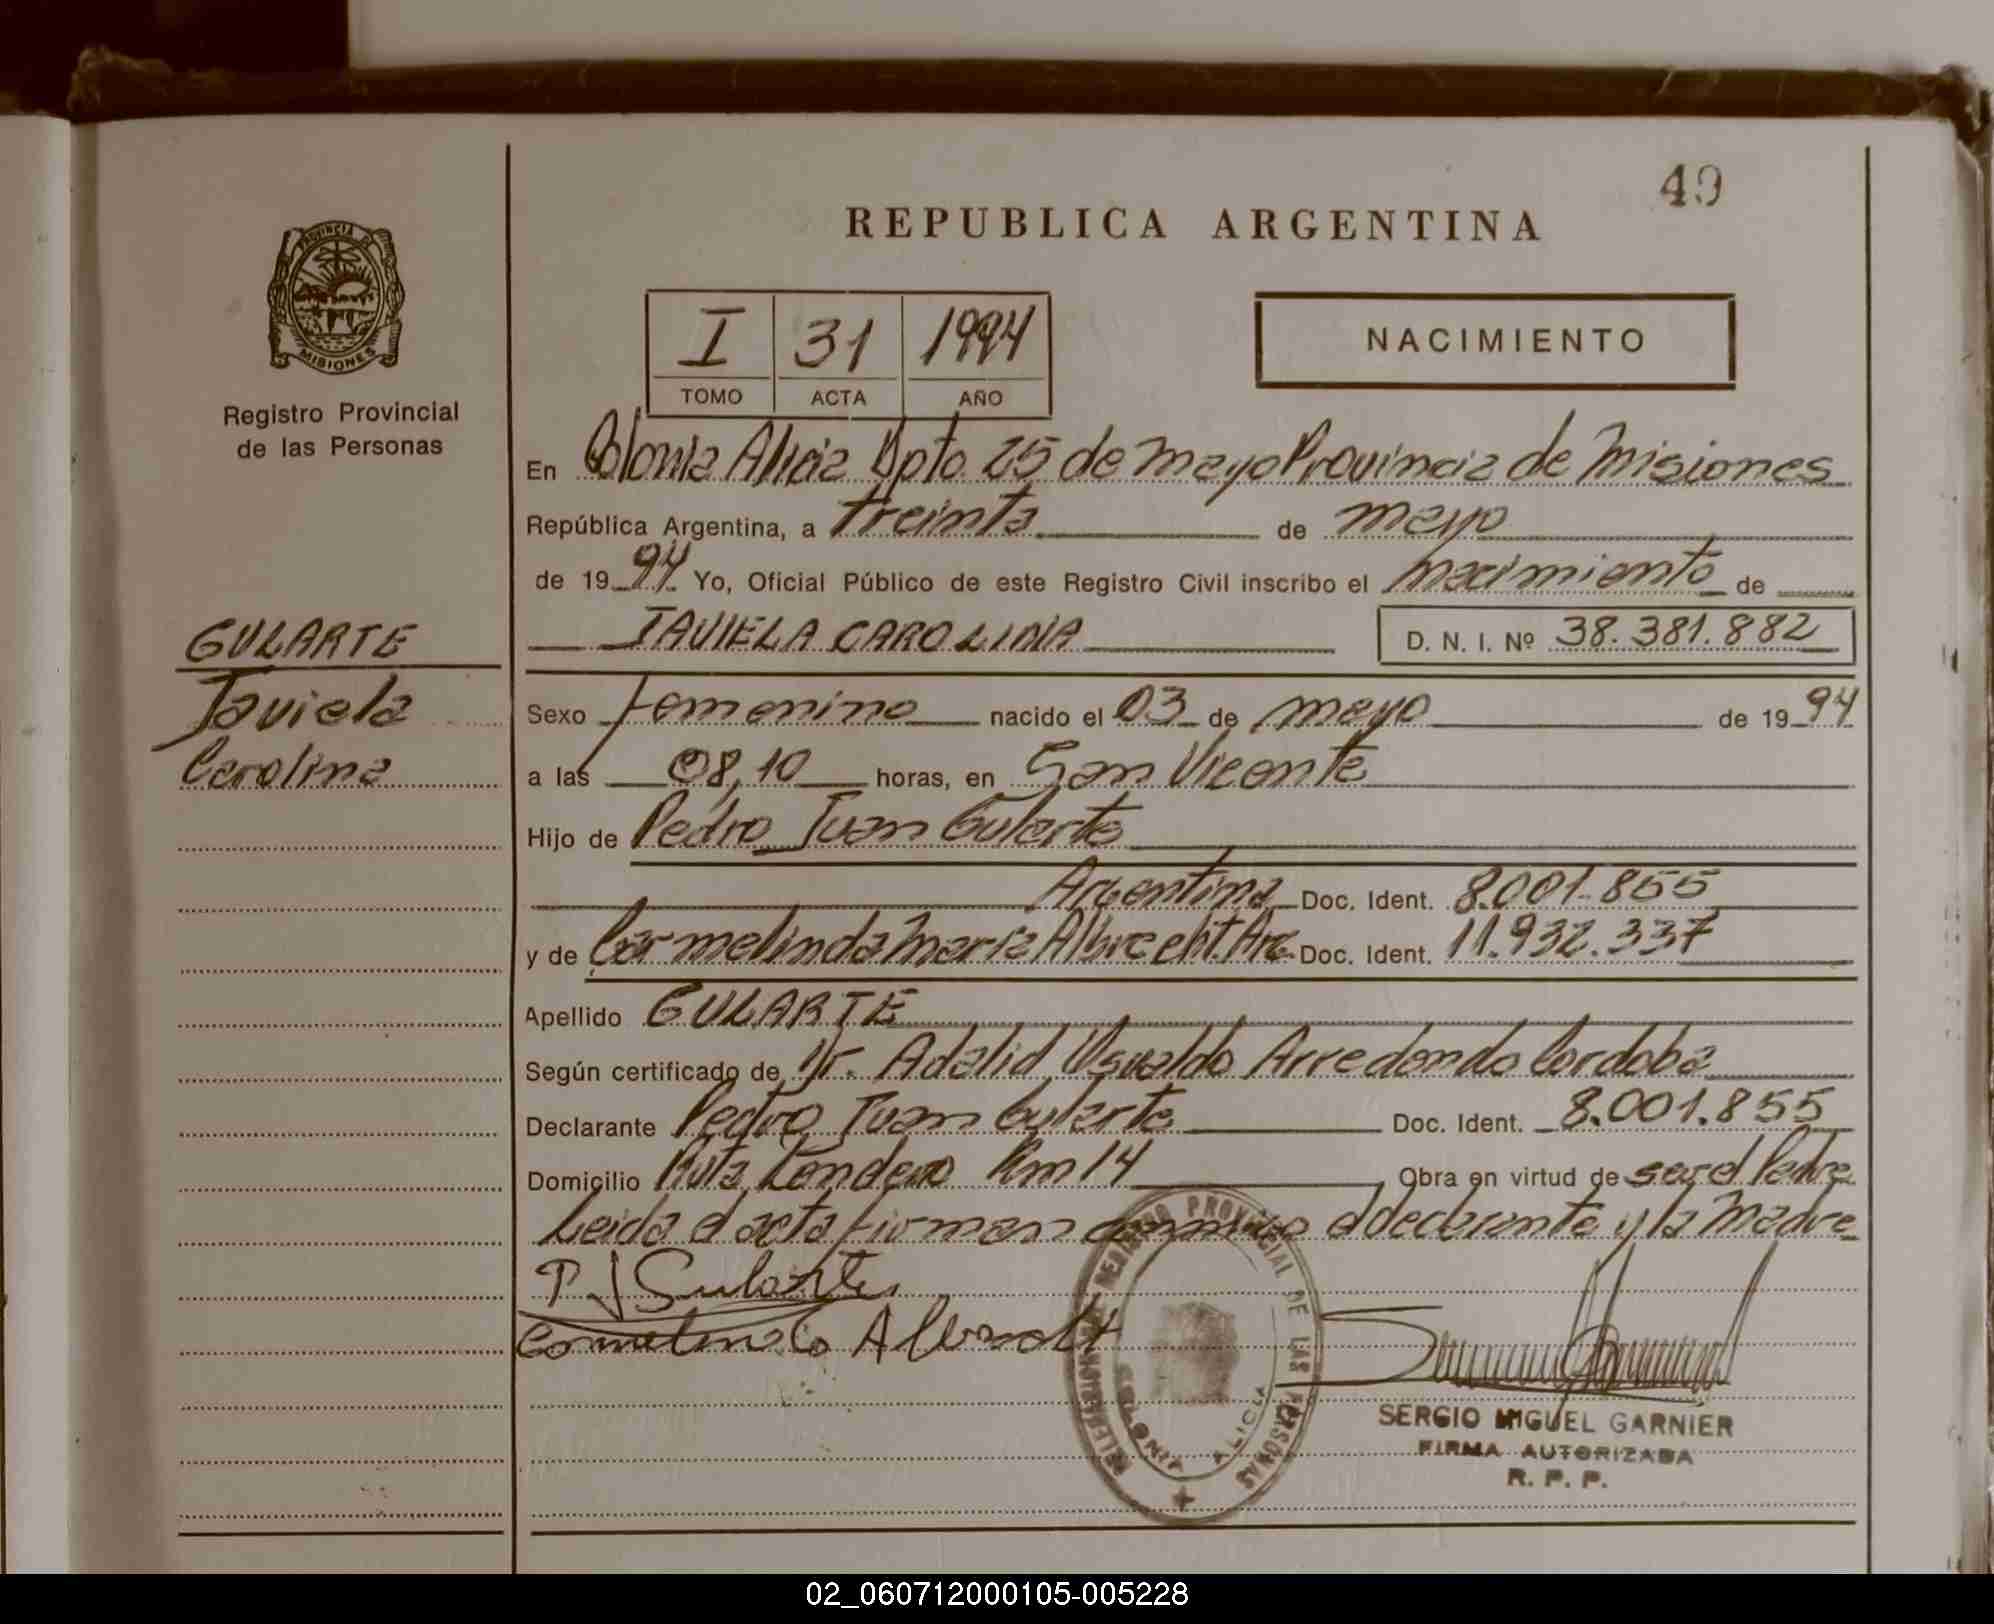 49
REPUBLICA ARGENTINA
PROVINCIA DE
MISIONES
Registro Provincial
de las Personas
I 31 1994
TOMO ACTA AÑO
NACIMIENTO
En Colonia Alicia Dpto. 25 de mayo Provincia de Misiones
República Argentina, a treinta de mayo
de 1994 Yo, Oficial Público de este Registro Civil inscribo el nacimiento de
GULARTE
Javiela
Carolina
JAVIELA CAROLINA D. N. I. Nº 38.381.882
Sexo femenino nacido el 03 de mayo de 1994
a las 08,10 horas, en San Vicente
Hijo de Pedro Juan Gularte
Argentina Doc. Ident. 8.001.855
y de Carmelinda María Albrecht. Arg. Doc. Ident. 11.932.337
Apellido GULARTE
Según certificado de Dr. Adalid Osvaldo Arredondo Cordoba
Declarante Pedro Juan Gularte Doc. Ident. 8.001.855
Domicilio Ruta Km 14 Obra en virtud de ser el Padre
Leida el acta firman conmigo el declarante y la Madre
P J Gularte
Carmelinda Albrecht
REGISTRO PROVINCIAL DE LAS PERSONAS
COLONIA ALICIA
SERGIO MIGUEL GARNIER
FIRMA AUTORIZADA
R. P. P.
02_060712000105-005228